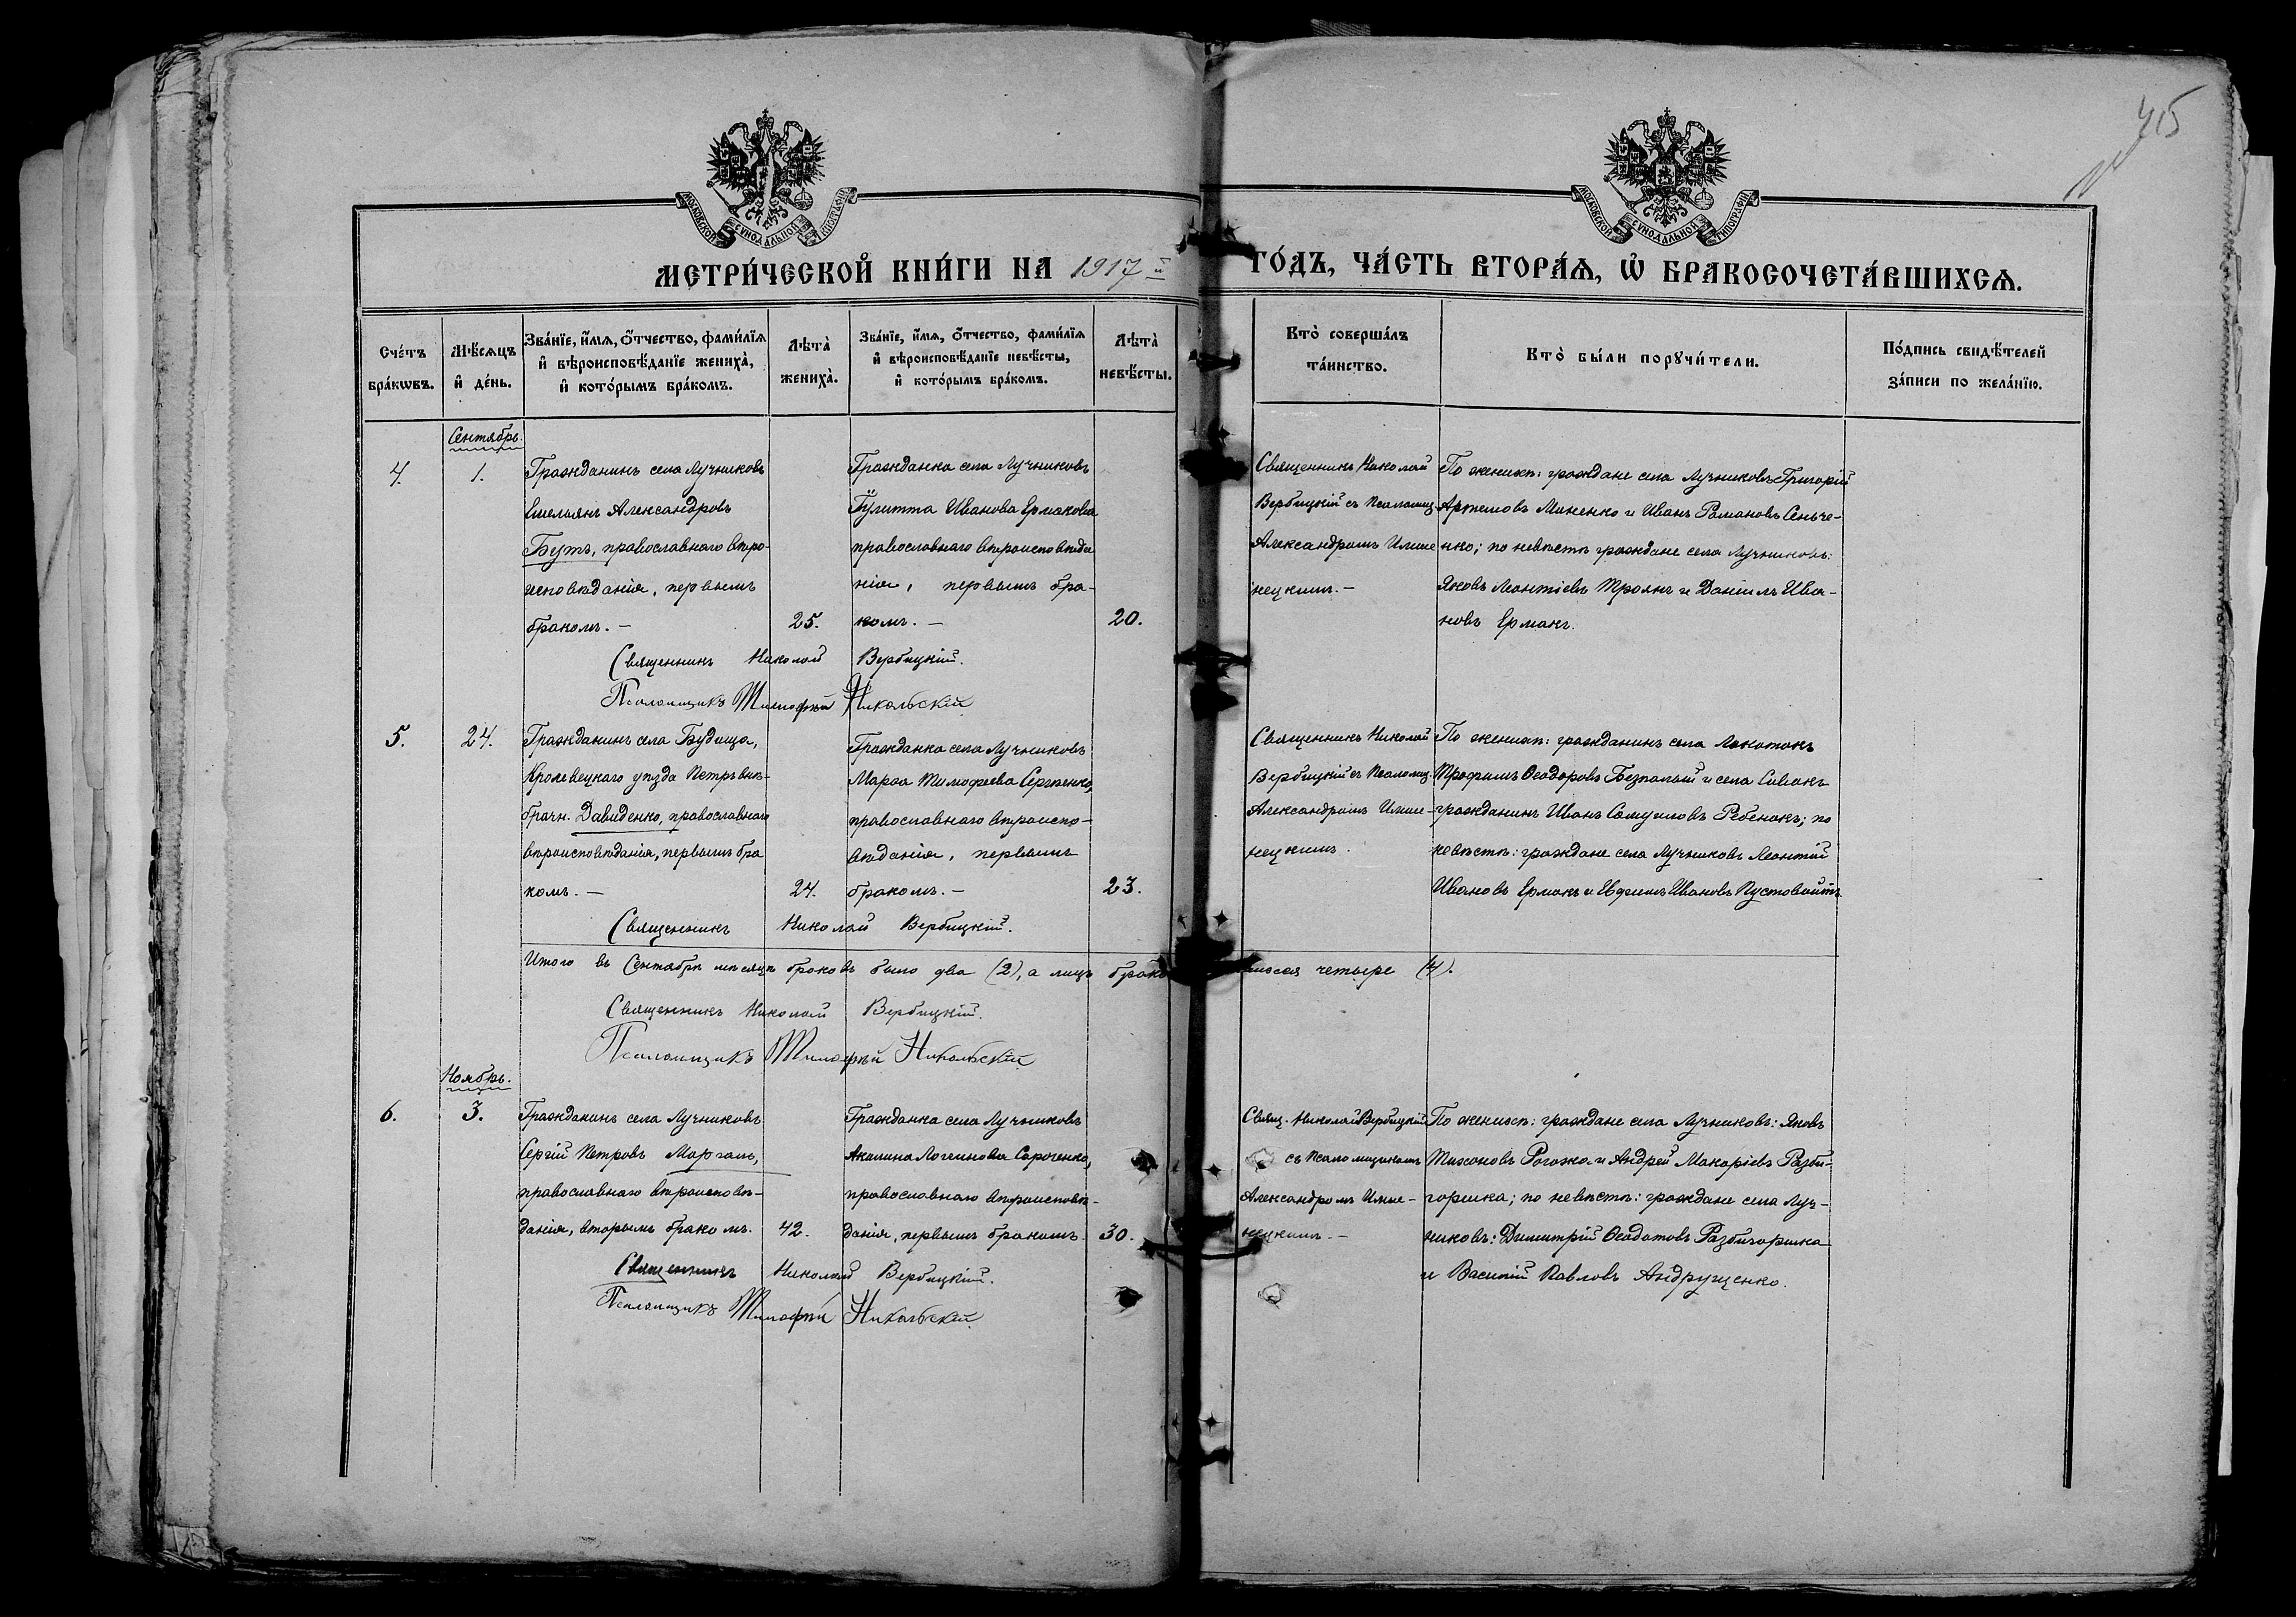 415
МОСКОВСКОЙ СѴНОДАЛЬНОЙ ТИПОГРАФІИ
МОСКОВСКОЙ СѴНОДАЛЬНОЙ ТИПОГРАФІИ
МЕТРИ́ЧЕСКОЙ КНИ́ГИ НА 1917й ГО́ДЪ, ЧА́СТЬ ВТОРА́Ѧ, Ѡ҆ БРАКОСОЧЕТА́ВШИХСѦ.
Сче́тъ бра́кѡвъ.
Мѣ́сѧцъ и҆ де́нь.
Зва́нїе, и҆́мѧ, ѻ҆́тчество, фами́лїѧ и҆ вѣроисповѣ́данїе жениха̀, и҆ кото́рымъ бра́комъ.
Лѣта̀ жениха̀.
Зва́нїе, и҆́мѧ, ѻ҆́тчество, фами́лїѧ и҆ вѣроисповѣ́данїе невѣ́сты, и҆ кото́рымъ бра́комъ.
Лѣта̀ невѣ́сты.
Кто̀ соверша́лъ та́инство.
Кто̀ бы́ли порꙋчи́тели.
По́дпись свидѣ́телей за́писи по жела́нїю.
Сентябрь.
4.
1.
Гражданинъ села Лучниковъ
Емельянъ Александровъ
Бутъ, православнаго вѣро-
исповѣданія, первымъ
бракомъ. –
25.
Гражданка села Лучниковъ
Іулитта Иванова Ермакова
православнаго вѣроисповѣда
нія, первымъ бра-
комъ. –
20.
Священникъ Николай
Вербицкій съ Псаломщ.
Александромъ Имше
нецкимъ. –
По женихѣ: граждане села Лучниковъ Григорій
Артемовъ Миненко и Иванъ Романовъ Сеньче-
нко; по невѣстѣ граждане села Лучниковъ:
Яковъ Леонтіевъ Троянъ и Даніилъ Ива-
новъ Ермакъ.
Священникъ Николай Вербицкій.
Псаломщикъ Тимофей Никольскій
5.
24.
Гражданинъ села Будища,
Кролевецкаго уѣзда Петръ внѣ-
брачн. Давиденко, православнаго
вѣроисповѣданія, первымъ бра
комъ. –
24.
Гражданка села Лучниковъ
Марѳа Тимофеева Сергіенко,
православнаго вѣроиспо-
вѣданія, первымъ
бракомъ. –
23.
Священникъ Николай
Вербицкій съ Псаломщ.
Александромъ Имше-
нецкимъ.
По женихѣ: гражданинъ села Локотокъ
Трофимъ Ѳеодоровъ Безпалый и села Сивокъ
гражданинъ Иванъ Самуиловъ Ребенокъ; по
невѣстѣ: граждане села Лучниковъ Леонтій
Ивановъ Ермакъ и Евфимъ Ивановъ Пустовойтъ.
Священникъ Николай Вербицкій.
Итого въ Сентябрѣ мѣсяцѣ браковъ было два (2), а лицъ брако четыре (4).
Священникъ Николай Вербицкій.
Псаломщикъ Тимофей Никольскій
Ноябрь.
6.
3.
Гражданинъ села Лучниковъ
Сергій Петровъ Маргаль,
православнаго вѣроисповѣ-
данія, вторымъ бракомъ.
42.
Гражданка села Лучниковъ
Акилина Логгинова Сороченко,
православнаго вѣроисповѣ-
данія, первымъ бракомъ.
30.
Свящ. Николай Вербицкій
съ Псаломщикомъ
Александромъ Имше-
нецкимъ. –
По женихѣ: граждане села Лучниковъ: Яковъ
Тихоновъ Рогожа и Андрей Макаріевъ Разби-
горшка; по невѣстѣ: граждане села Луч-
никовъ: Димитрій Ѳеодотовъ Разбигоршка
и Василій Павловъ Андрущенко.
Священникъ Николай Вербицкій.
Псаломщикъ Тимофей Никольскій